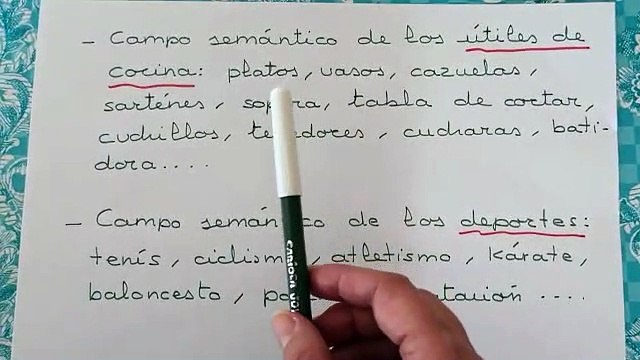 - Campo semántico de los útiles de
cocina: platos, vasos, cazuelas,
sarténes, tabla de cortar,
cuchillos, cucharas, bati-
dora....
- Campo semántico de los deportes:
tenís, ciclismo, atletismo, kárate,
baloncesto,
CARIOCA